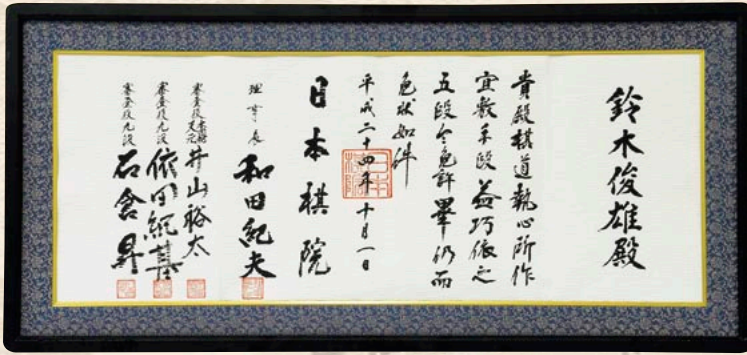 鈴木俊雄殿
貴殿棋道執心所作
宜敷手段益巧依之
五段令免許畢仍而
免状如件
平成二十四年十月一日
日本棋院
理事長 和田紀夫
審査役 本因坊 天元 井山裕太
審査役九段 依田紀基
審査役九段 石倉昇